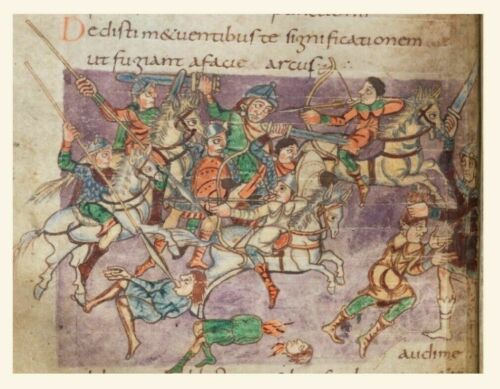 Dedistim&uentibuste significationem
ut fugiant afacie arcus
audime